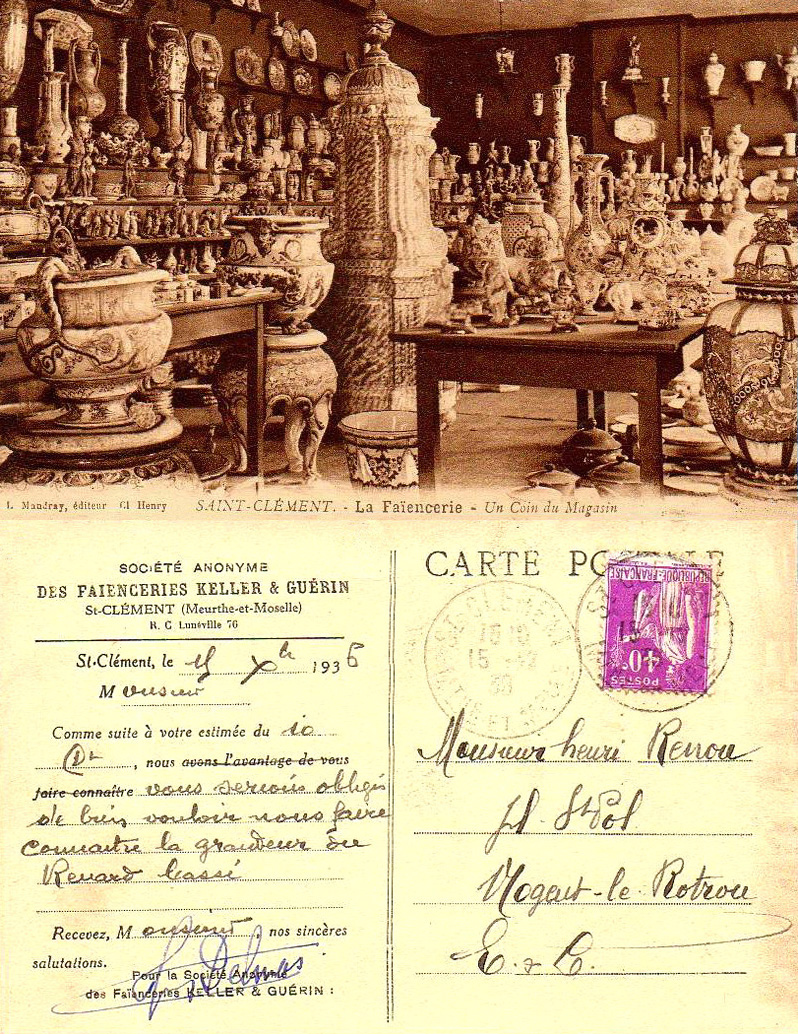 L. Mandray, éditeur Cl Henry SAINT-CLÉMENT. - La Faïencerie - Un Coin du Magasin
SOCIÉTÉ ANONYME
DES FAIENCERIES KELLER & GUÉRIN
St-CLÉMENT (Meurthe-et-Moselle)
R. C. Lunéville 76
St-Clément, le 15 Xbre 1936
Monsieur
Comme suite à votre estimée du 10
, nous avons l'avantage de vous
faire connaître vous serions obligés
de bien vouloir nous faire
connaitre la grandeur du
Renard cassé
Recevez, Monsieur, nos sincères
salutations.
Pour la Société Anonyme
des Faïenceries KELLER & GUÉRIN :
CARTE POSTALE
ST-CLÉMENT
15 10
15 -12
36
RÉPUBLIQUE-FRANÇAISE
40c
POSTES
Monsieur henri Renou
pl. St Pol
Nogent-le-Rotrou
E. & L.